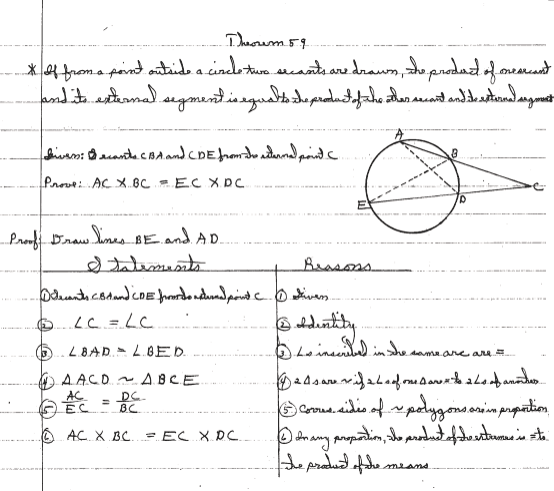 Theorem 59
* If from a point outside a circle two secants are drawn, the product of one secant
and its external segment is equal to the product of the other secant and its external segment
Given: 2 secants CBA and CDE from the external point C
Prove: AC X BC = EC X DC
A
B
C
D
E
Proof: Draw lines BE and AD
Statements
Reasons
① Secants CBA and CDE from external point C ① Given
② ∠C = ∠C ② Identity
③ ∠BAD = ∠BED ③ ∠s inscribed in the same arc are =
④ △ACD ~ △BCE ④ 2 △s are ~ if 2 ∠s of one △ are = to 2 ∠s of another
⑤ AC/EC = DC/BC ⑤ Corres. sides of ~ polygons are in proportion
⑥ AC X BC = EC X DC ⑥ In any proportion, the product of the extremes is = to
the product of the means